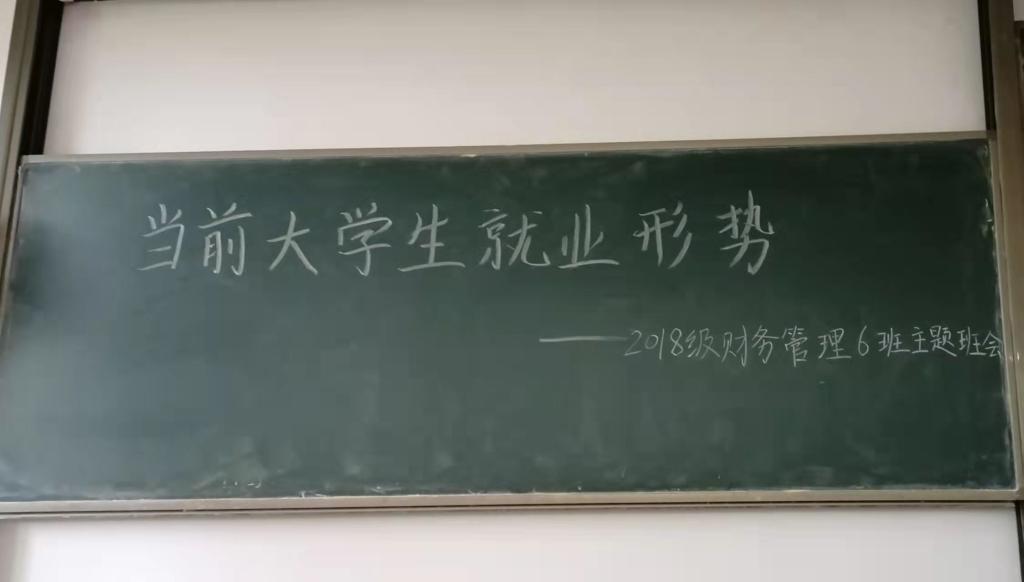 当前大学生就业形势
——2018级财务管理6班主题班会